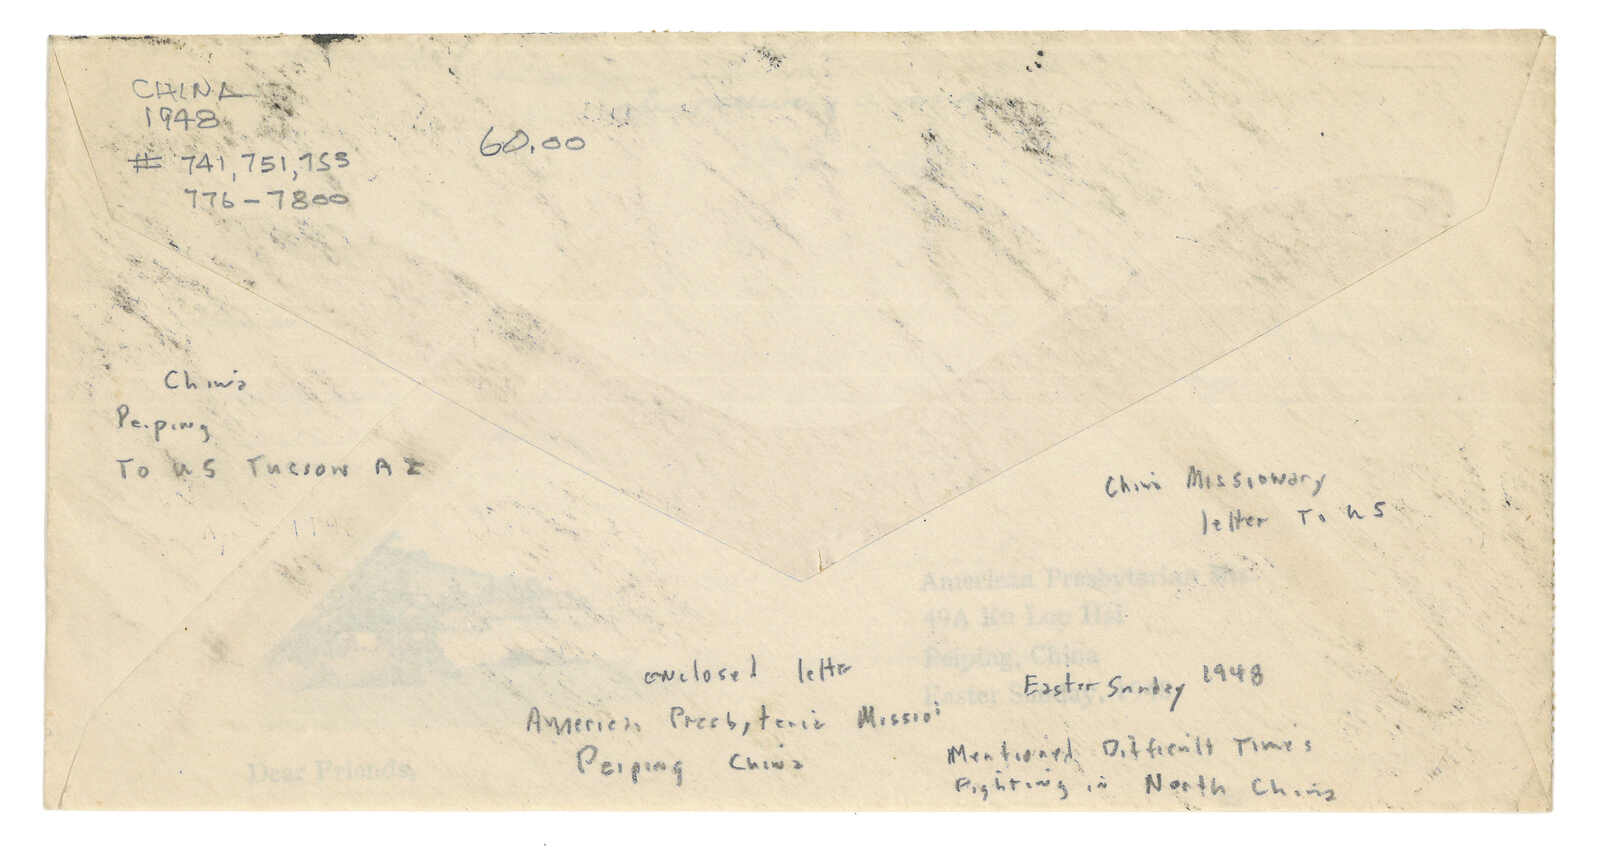 CHINA
1948
# 741,751,755
776-7800
60.00
China
Peiping
To US Tucson AZ
China Missionary
letter To US
American Presbyterian
49A Ku Lou Hsi
Peiping, China
Easter Sunday,
enclosed letter
American Presbyteria Missio
Peiping China
Easter Sunday 1948
Mentioned Difficult Times
Fighting in North China
Dear Friends,